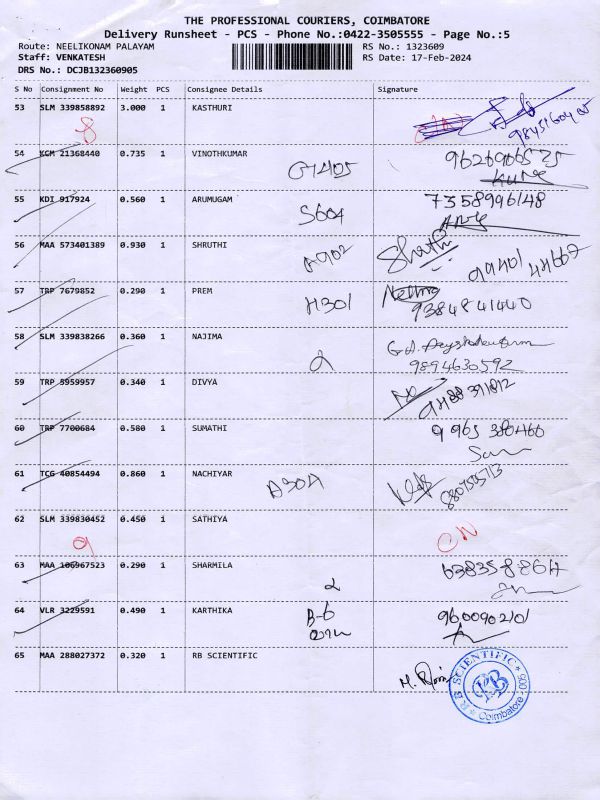 THE PROFESSIONAL COURIERS, COIMBATORE
Delivery Runsheet - PCS - Phone No.:0422-3505555 - Page No.:5
Route: NEELIKONAM PALAYAM RS No.: 1323609
Staff: VENKATESH RS Date: 17-Feb-2024
DRS No.: DCJB132360905
S No Consignment No Weight PCS Consignee Details Signature
53 SLM 339858892 3.000 1 KASTHURI
54 KGM 21368440 0.735 1 VINOTHKUMAR
G1405 9626906525
55 KDI 917924 0.560 1 ARUMUGAM 7358996148
S604
56 MAA 573401389 0.930 1 SHRUTHI
A902 Shruthi 99401 44667
57 TRP 7679852 0.290 1 PREM
H301 9384841440
58 SLM 339838266 0.360 1 NAJIMA
2 9894630592
59 TRP 5959957 0.340 1 DIVYA
60 TRP 7700684 0.580 1 SUMATHI 9 965 380460
61 TCG 40854494 0.860 1 NACHIYAR
A301
62 SLM 339830452 0.450 1 SATHIYA
CN
63 MAA 106967523 0.290 1 SHARMILA
2
64 VLR 3229591 0.490 1 KARTHIKA
B-6 9600902101
65 MAA 288027372 0.320 1 RB SCIENTIFIC
RB SCIENTIFIC
RB
Coimbatore-006